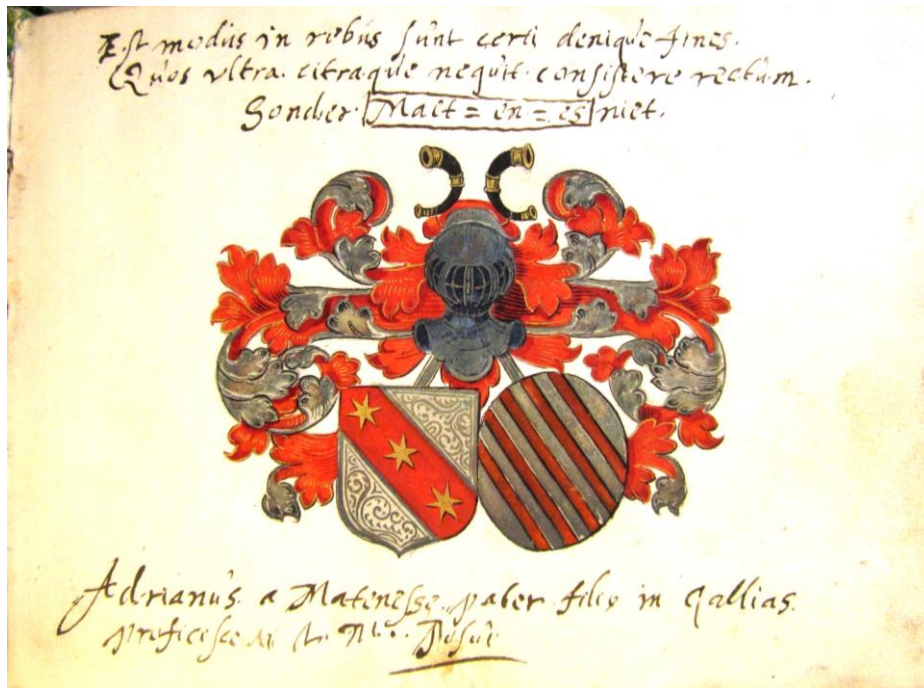 Est modus in rebus sunt certi denique fines.
Quos ultra. citraque nequit. consistere rectum.
Sonder. Maet = en = es niet.
Adrianus. a Matenesse. pater. filio in Gallias.
Posuit